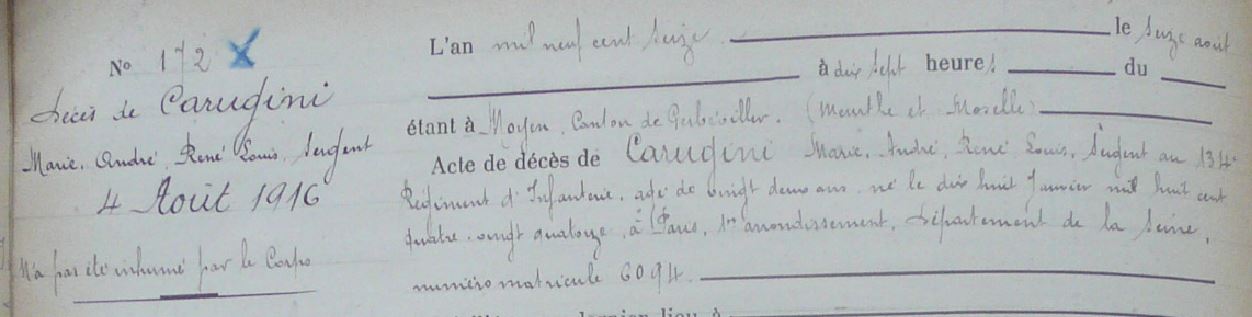 N° 172
Décès de Carugini
Marie, André, René Louis, Sergent
4 Août 1916
N'a pas été inhumé par le Corps
L'an mil neuf cent seize le seize août
à dix sept heures du
étant à Moyen, Canton de Gerbéviller. (Meurthe et Moselle)
Acte de décès de Carugini Marie, André, René Louis, Sergent au 134e
Régiment d'Infanterie, agé de vingt deux ans, né le dix huit Janvier mil huit cent
quatre-vingt quatorze, à Paris, 1er arrondissement, département de la Seine,
numéro matricule 6094.